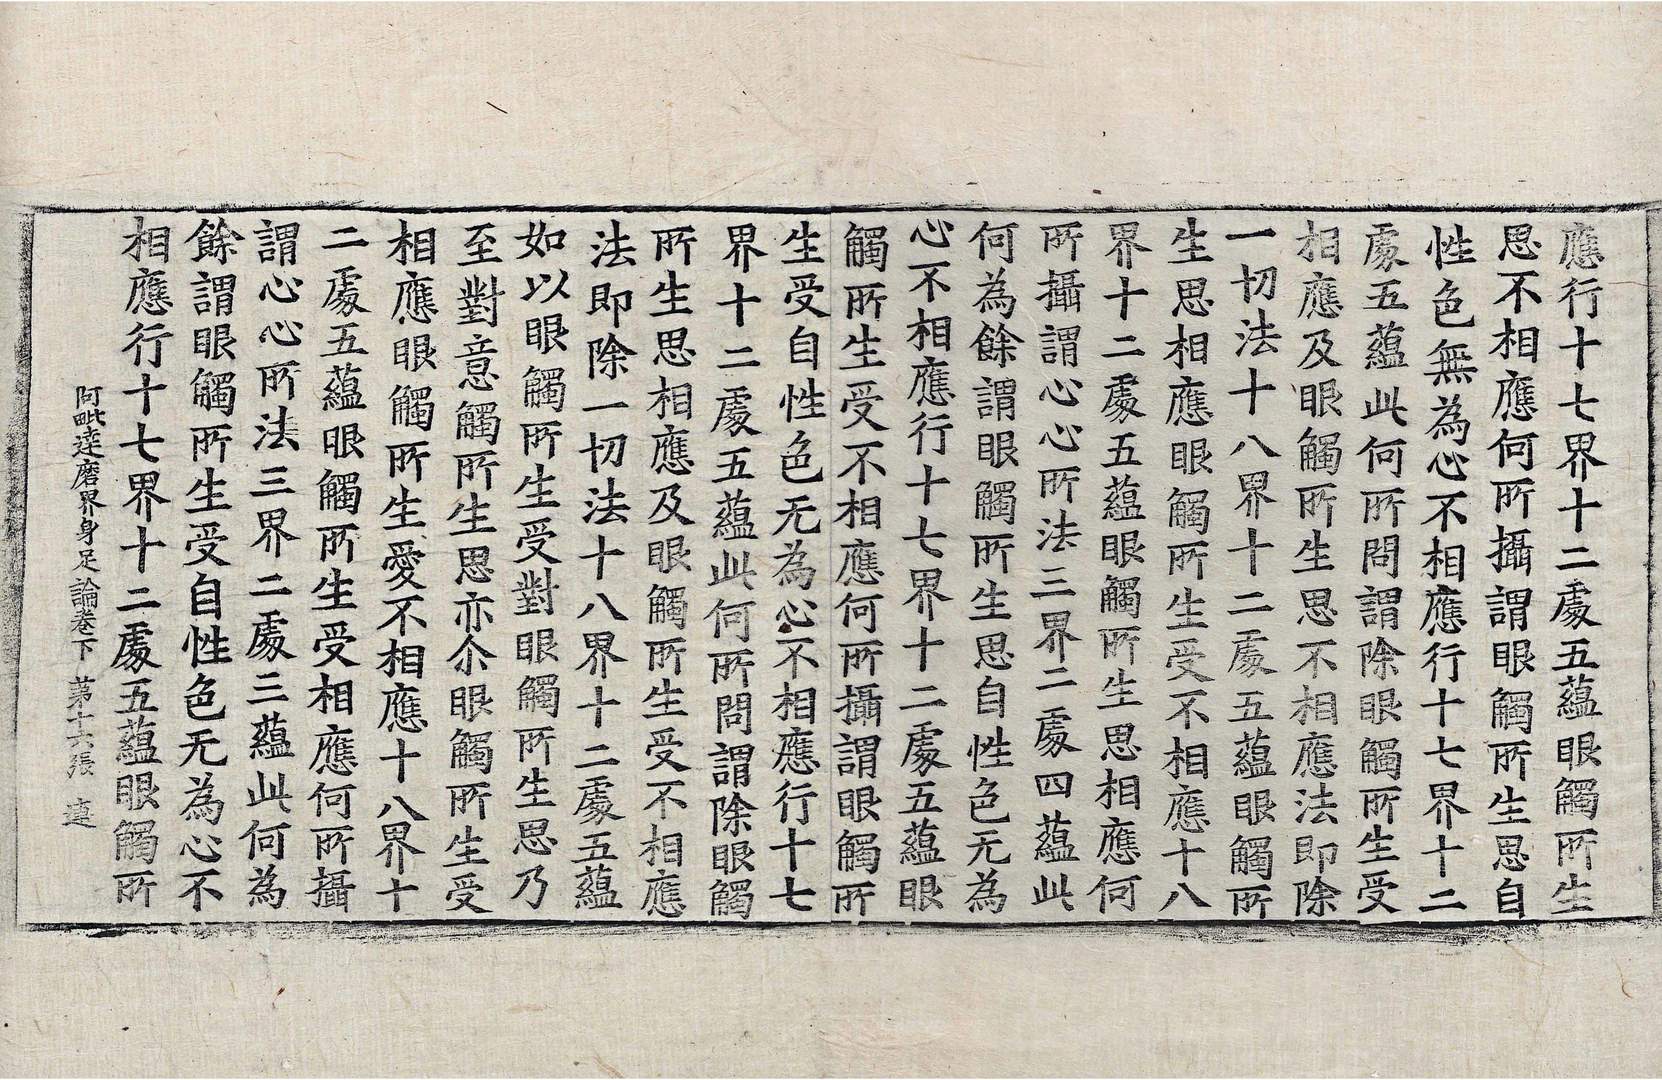 應行十七界十二處五蘊眼觸所生
思不相應何所攝謂眼觸所生思自
性色無為心不相應行十七界十二
處五蘊此何所問謂除眼觸所生受
相應及眼觸所生思不相應法即除
一切法十八界十二處五蘊眼觸所
生思相應眼觸所生受不相應十八
界十二處五蘊眼觸所生思相應何
所攝謂心心所法三界二處四蘊此
何為餘謂眼觸所生思自性色无為
心不相應行十七界十二處五蘊眼
觸所生受不相應何所攝謂眼觸所
生受自性色无為心不相應行十七
界十二處五蘊此何所問謂除眼觸
所生思相應及眼觸所生受不相應
法即除一切法十八界十二處五蘊
如以眼觸所生受對眼觸所生思乃
至對意觸所生思亦尒眼觸所生受
相應眼觸所生愛不相應十八界十
二處五蘊眼觸所生受相應何所攝
謂心心所法三界二處三蘊此何為
餘謂眼觸所生受自性色无為心不
相應行十七界十二處五蘊眼觸所
阿毗達磨界身足論卷下 第十六張 㢠